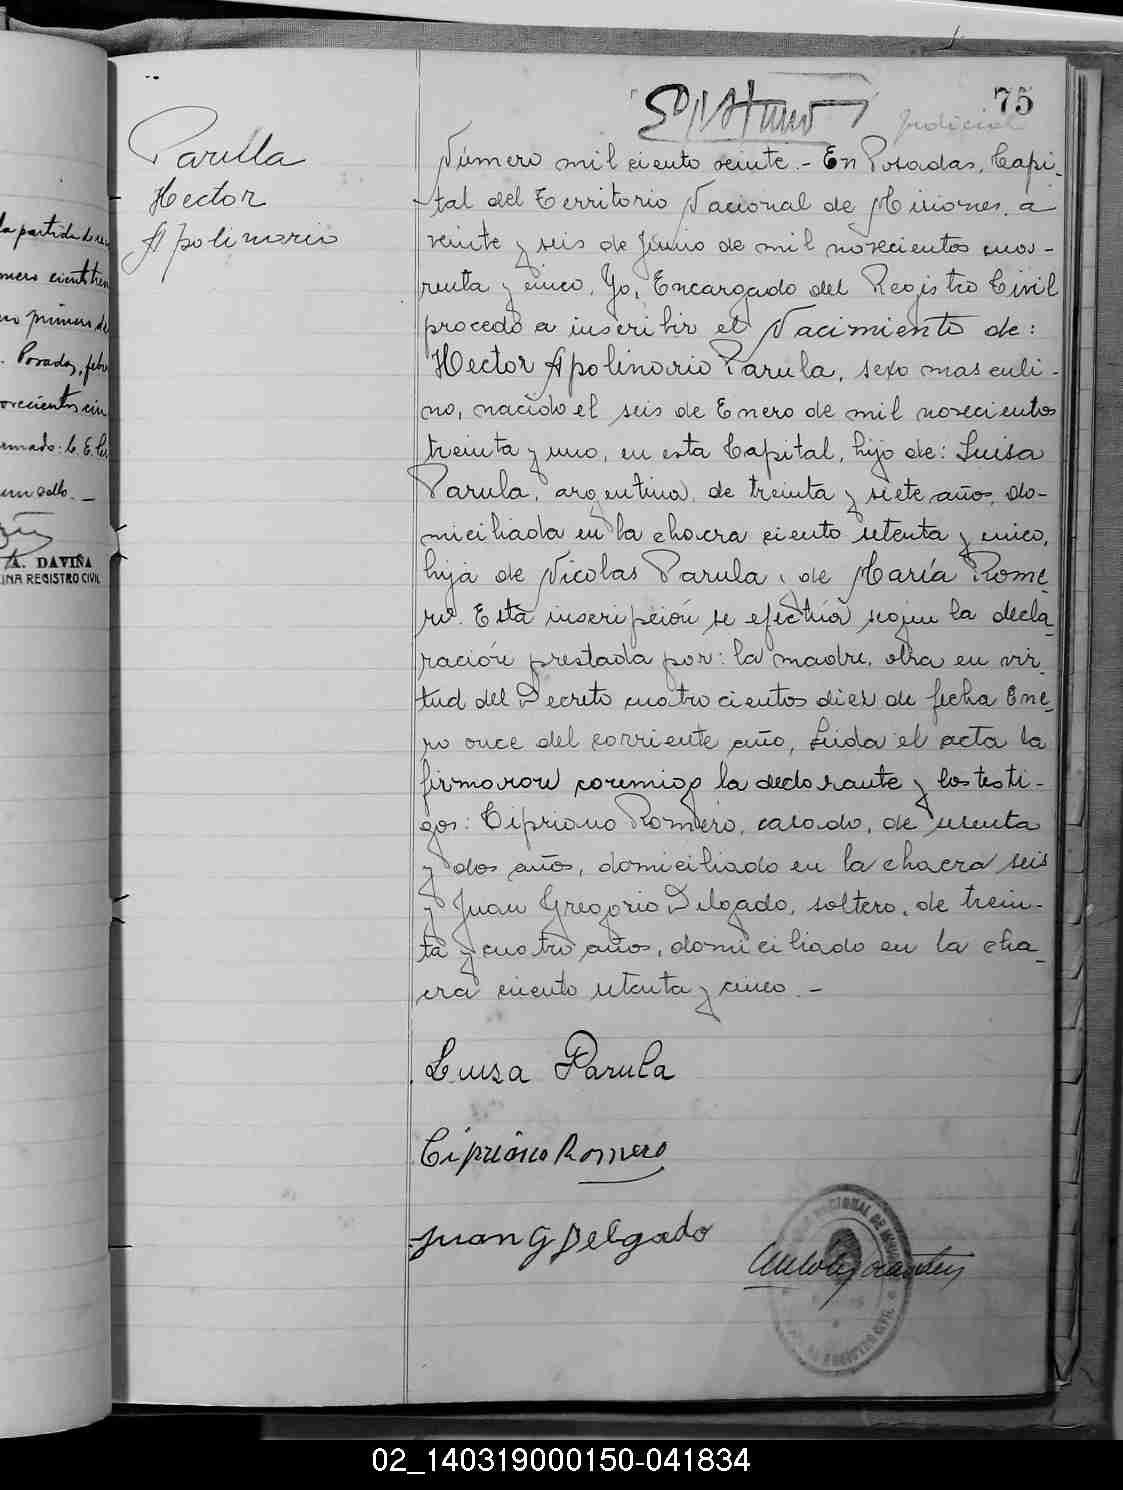 75
Judicial
Parulla
Hector
Apolinario
Número mil ciento veinte.- En Posadas, Capi-
tal del Territorio Nacional de Misiones, a
veinte y seis de Junio de mil novecientos cua-
renta y cinco, Yo, Encargado del Registro Civil
procedo a inscribir el Nacimiento de:
Hector Apolinario Parula, sexo masculi-
no, nacido el seis de Enero de mil novecientos
treinta y uno, en esta Capital, hijo de: Luisa
Parula, argentina, de treinta y siete años, do-
miciliada en la chacra ciento setenta y cinco,
hija de Nicolas Parula y de María Rome-
ro. Esta inscripción se efectúa según la decla-
ración prestada por: la madre, obra en vir-
tud del Decreto cuatrocientos diez de fecha Ene-
ro once del corriente año, Leida el acta la
firmaron conmigo la declarante y los testi-
gos: Cipriano Romero, casado, de
y dos años, domiciliado en la chacra seis
y Juan Gregorio Delgado, soltero, de trein-
ta y cuatro años, domiciliado en la cha-
cra ciento setenta y cinco.-
Luisa Parula
Cipriano Romero
Juan G Delgado
la partida de
mero ciento
primero de
Posadas, feb
ovecientos cin
rmado: C. E.
A. DAVIÑA
INA REGISTRO CIVIL
NACIONAL DE
REGISTRO CIVIL
02_140319000150-041834